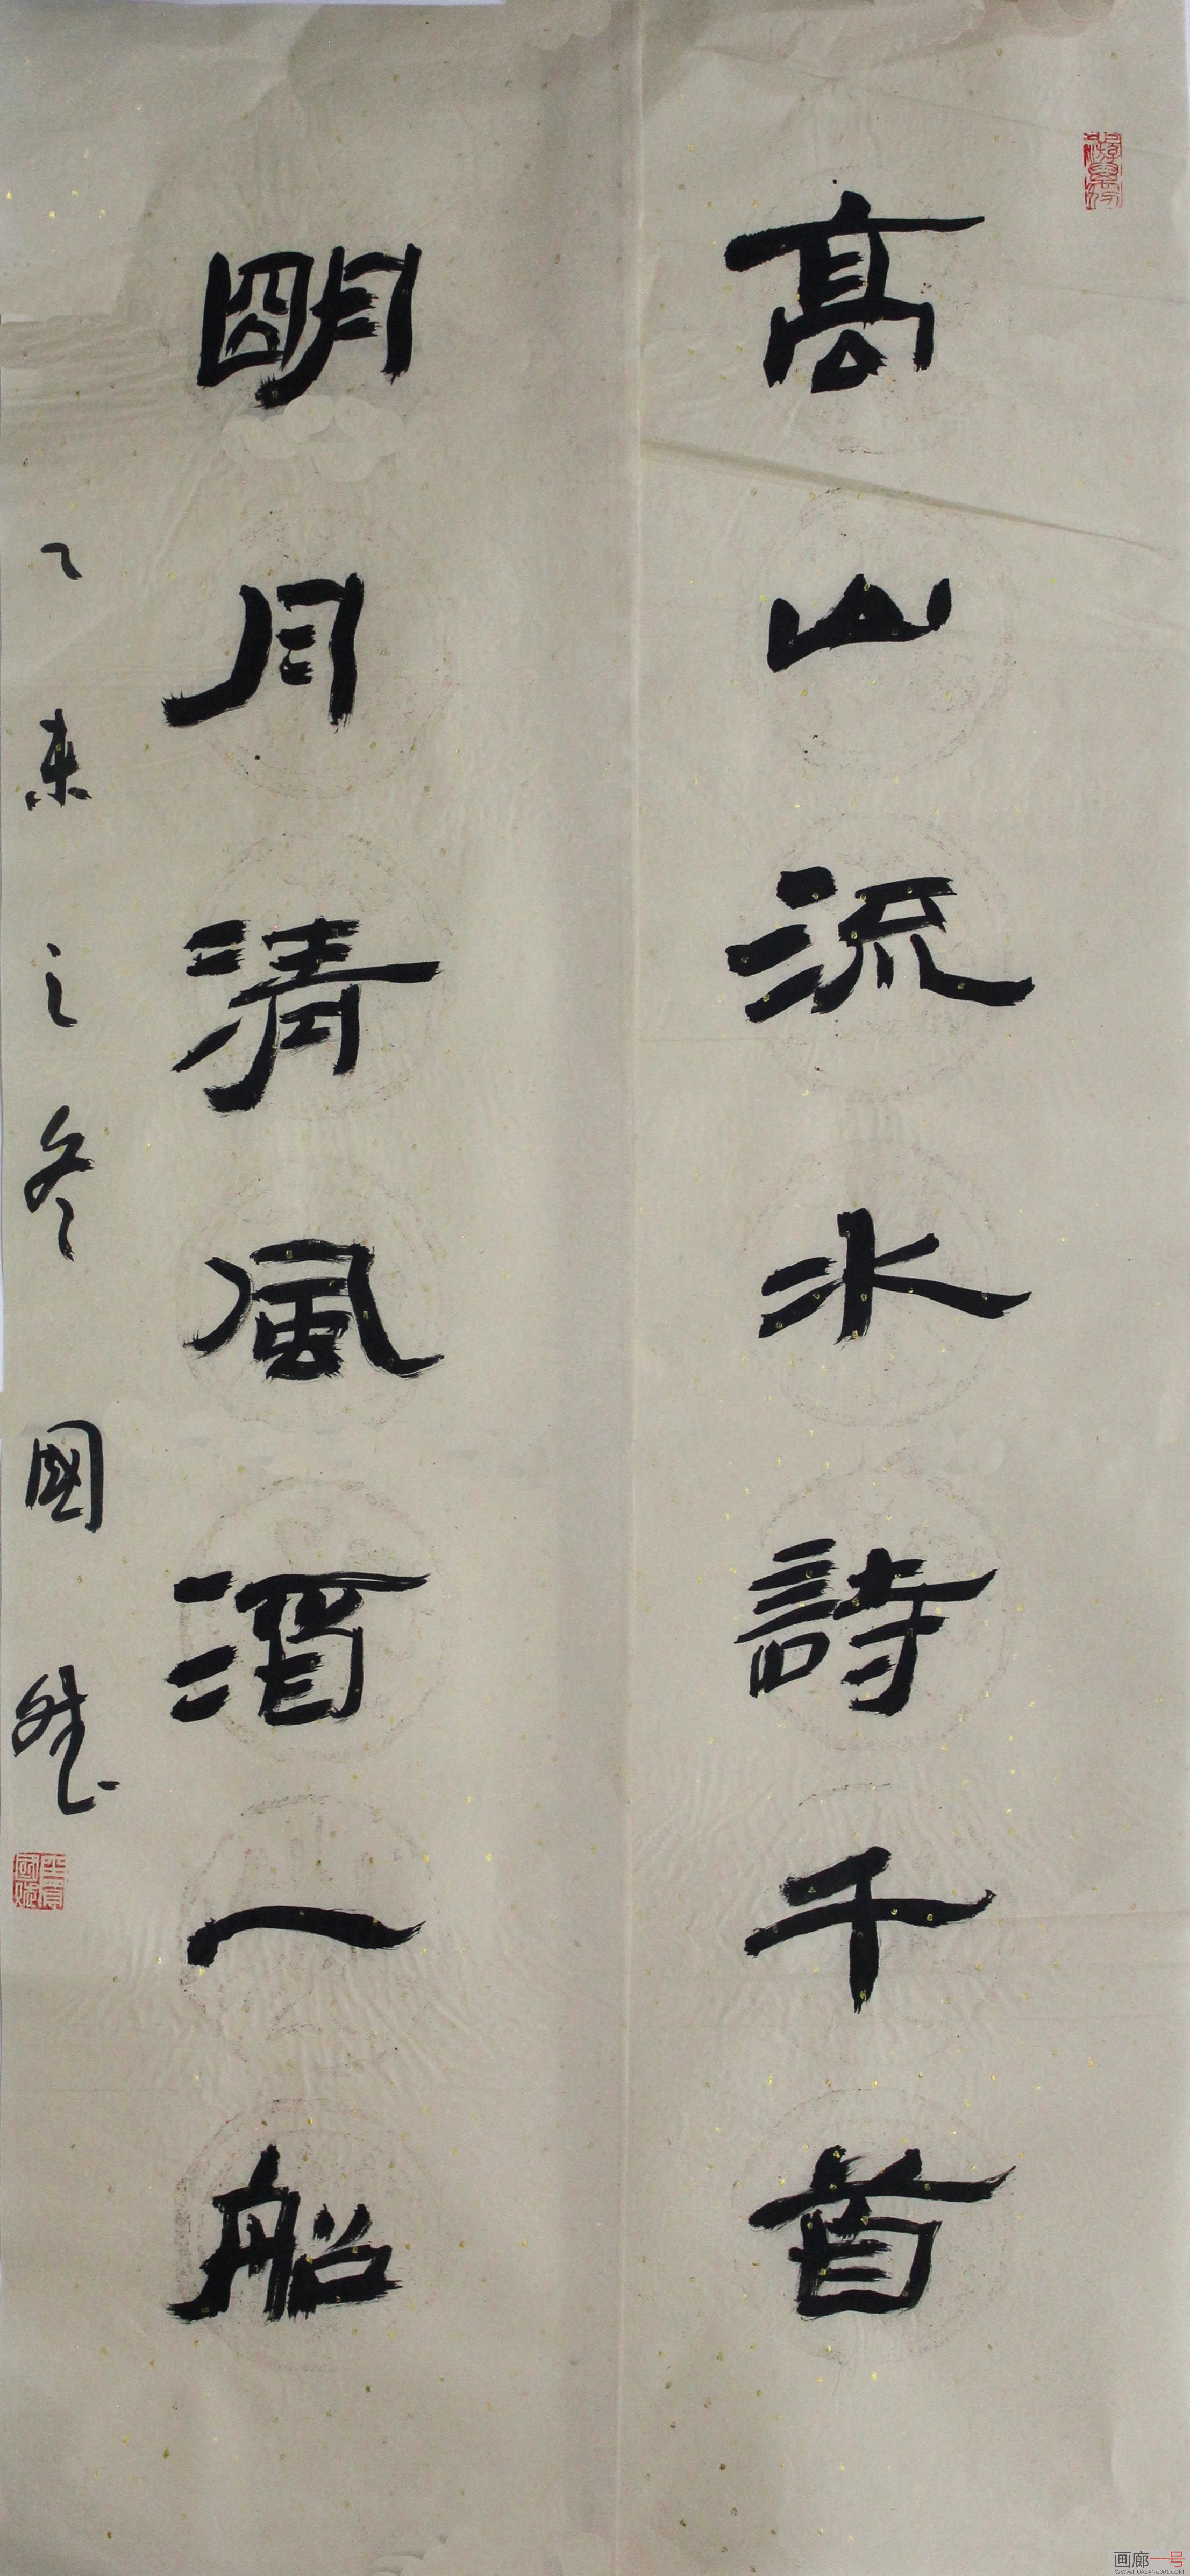 高山流水詩千首
明月清風酒一船
乙未之冬國斌
画廊一号
WWW.HUALANG001.COM